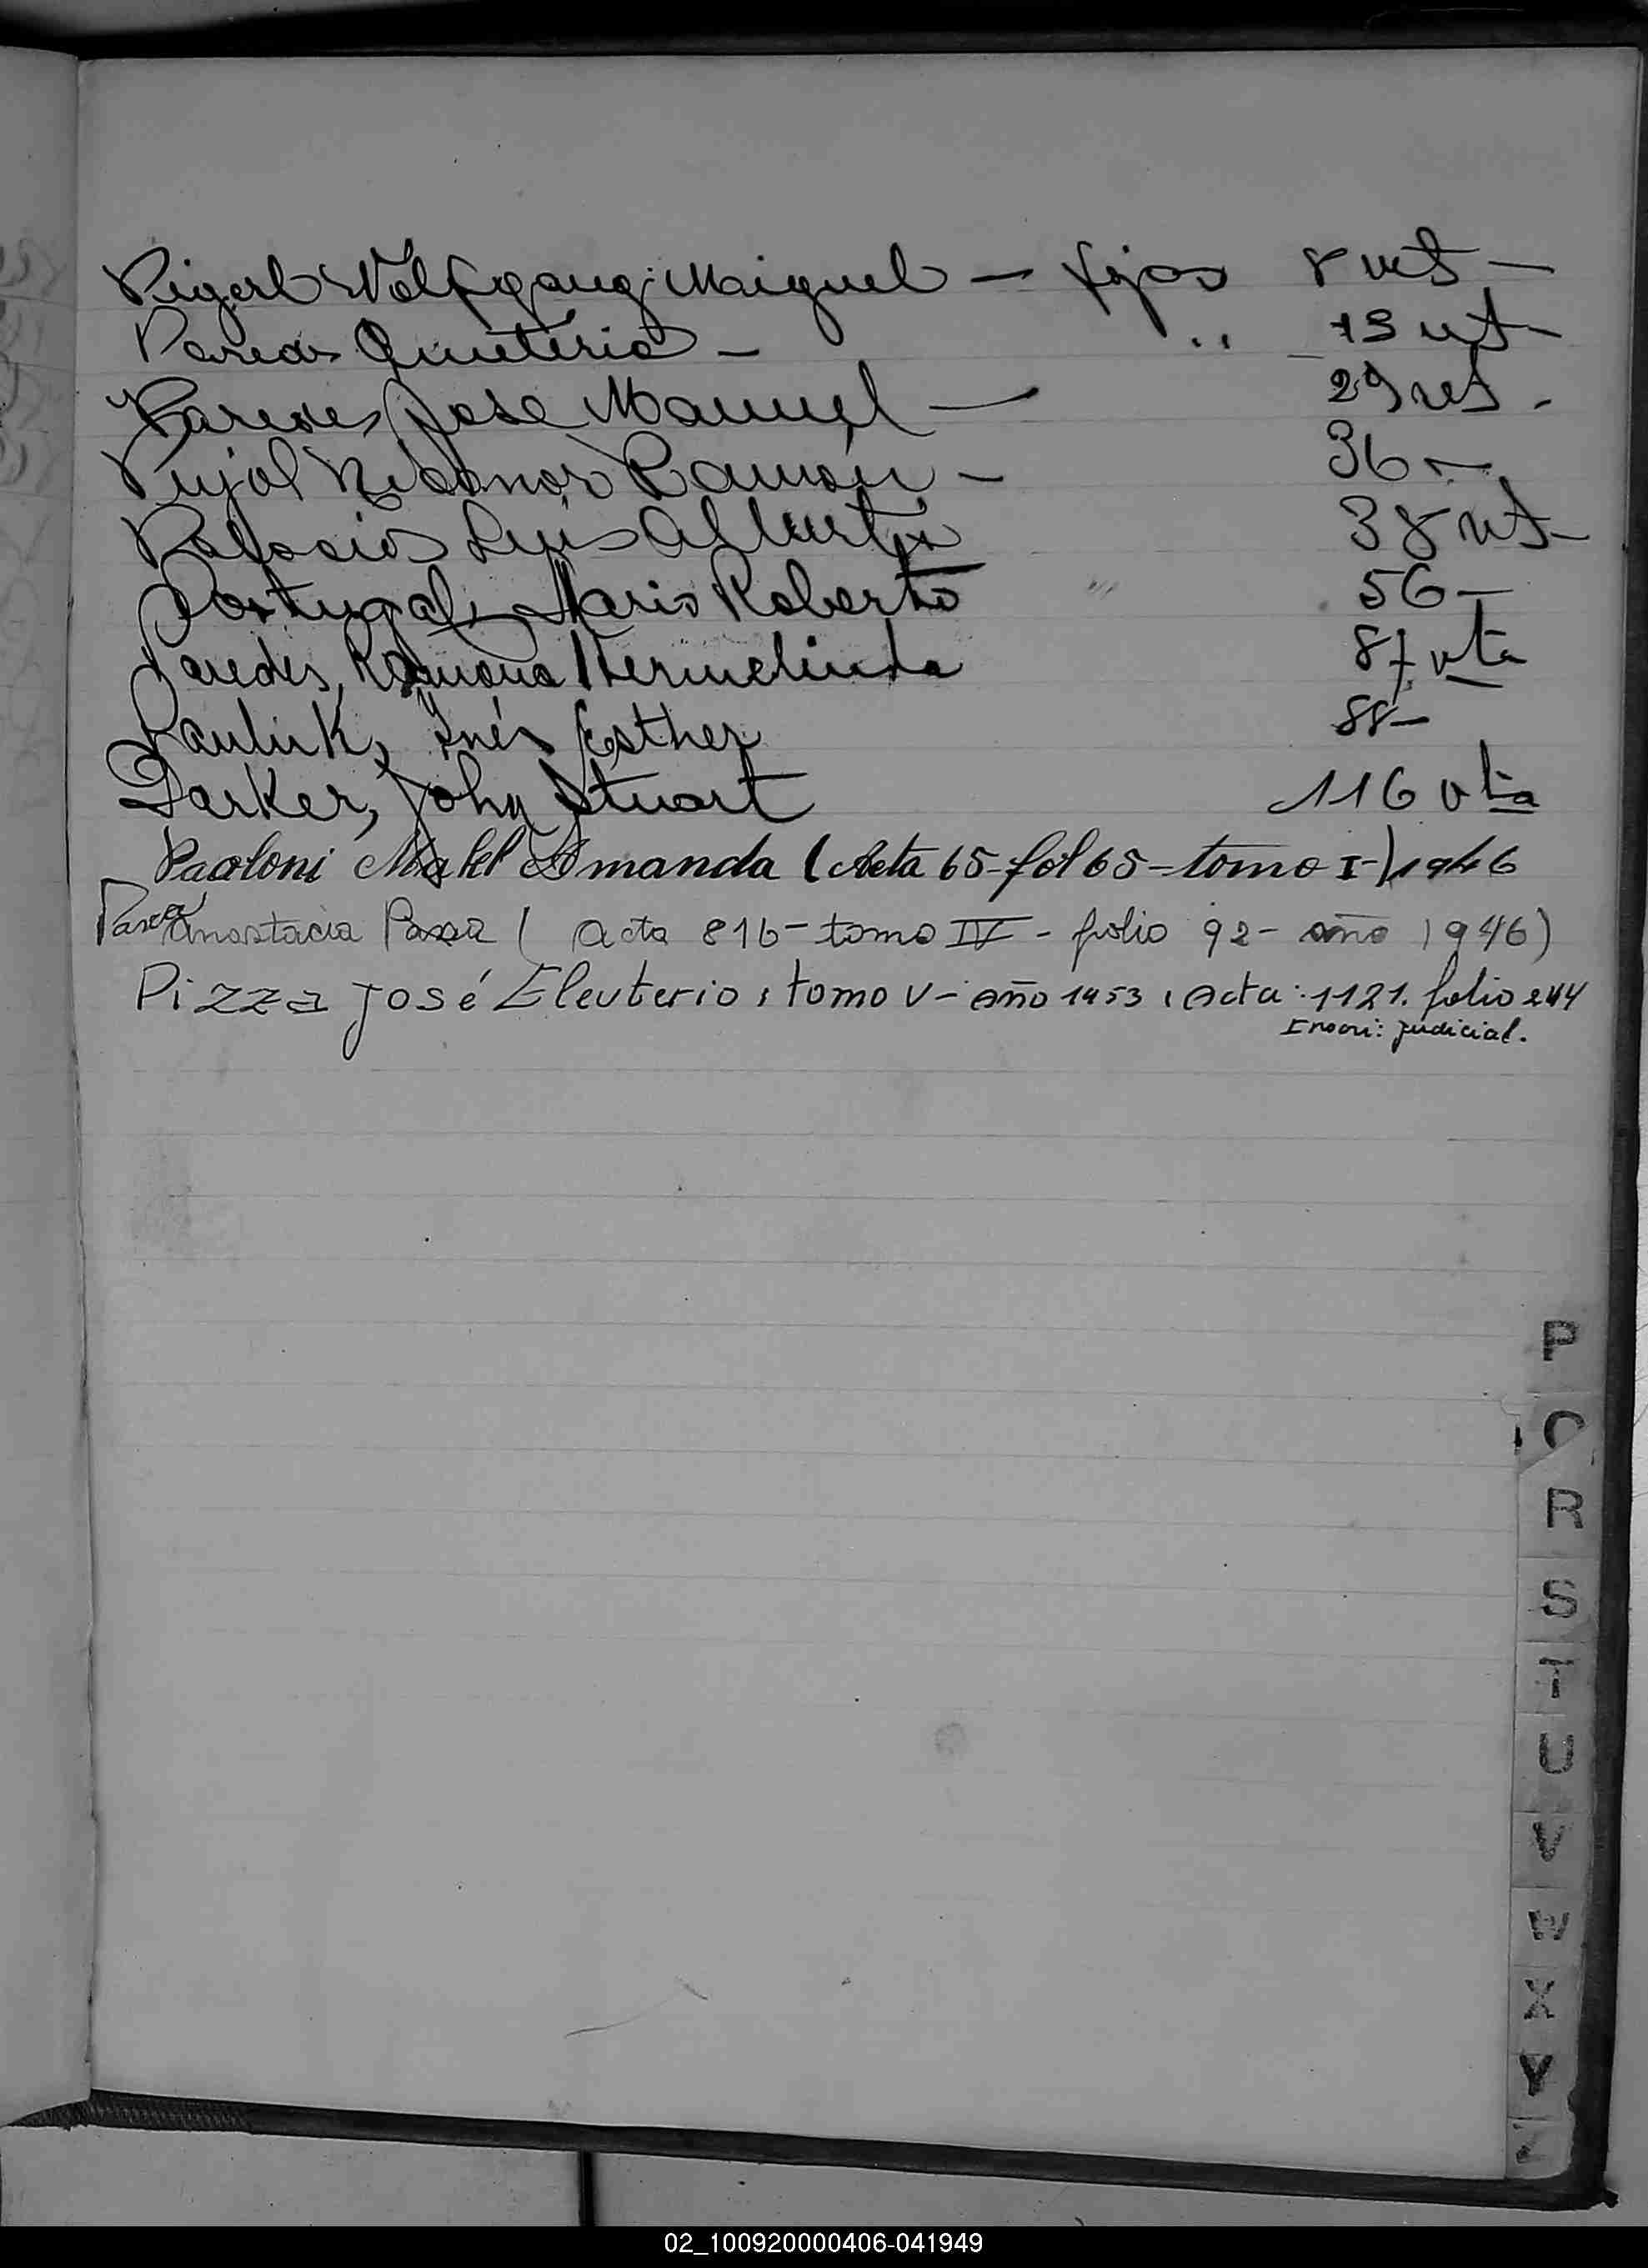 Pigerl Wolfgang Miguel — fojas 8 vta —
Pereda Quinteria — " 13 vta —
Paredes Jose Manuel — 29 vta -
Pujol Nicanor Ramón — 36 —
Palacios Luis Alberto 38 vta —
Portugal, Mario Roberto 56 —
Paredes, Ramona Hermelinda 87 vta
Pauluk, Inés Esther 88 —
Parker, John Stuart 116 vta
Paoloni Mabel Amanda (Acta 65 - fol 65 - tomo I -) 1946
Anastacia (Acta 816 - tomo IV - folio 92 - año 1946)
Pizza José Eleuterio, tomo V - año 1953, Acta: 1121. folio 244
Inscri: judicial.
P
R
S
T
U
V
W
X
Y
02_100920000406-041949